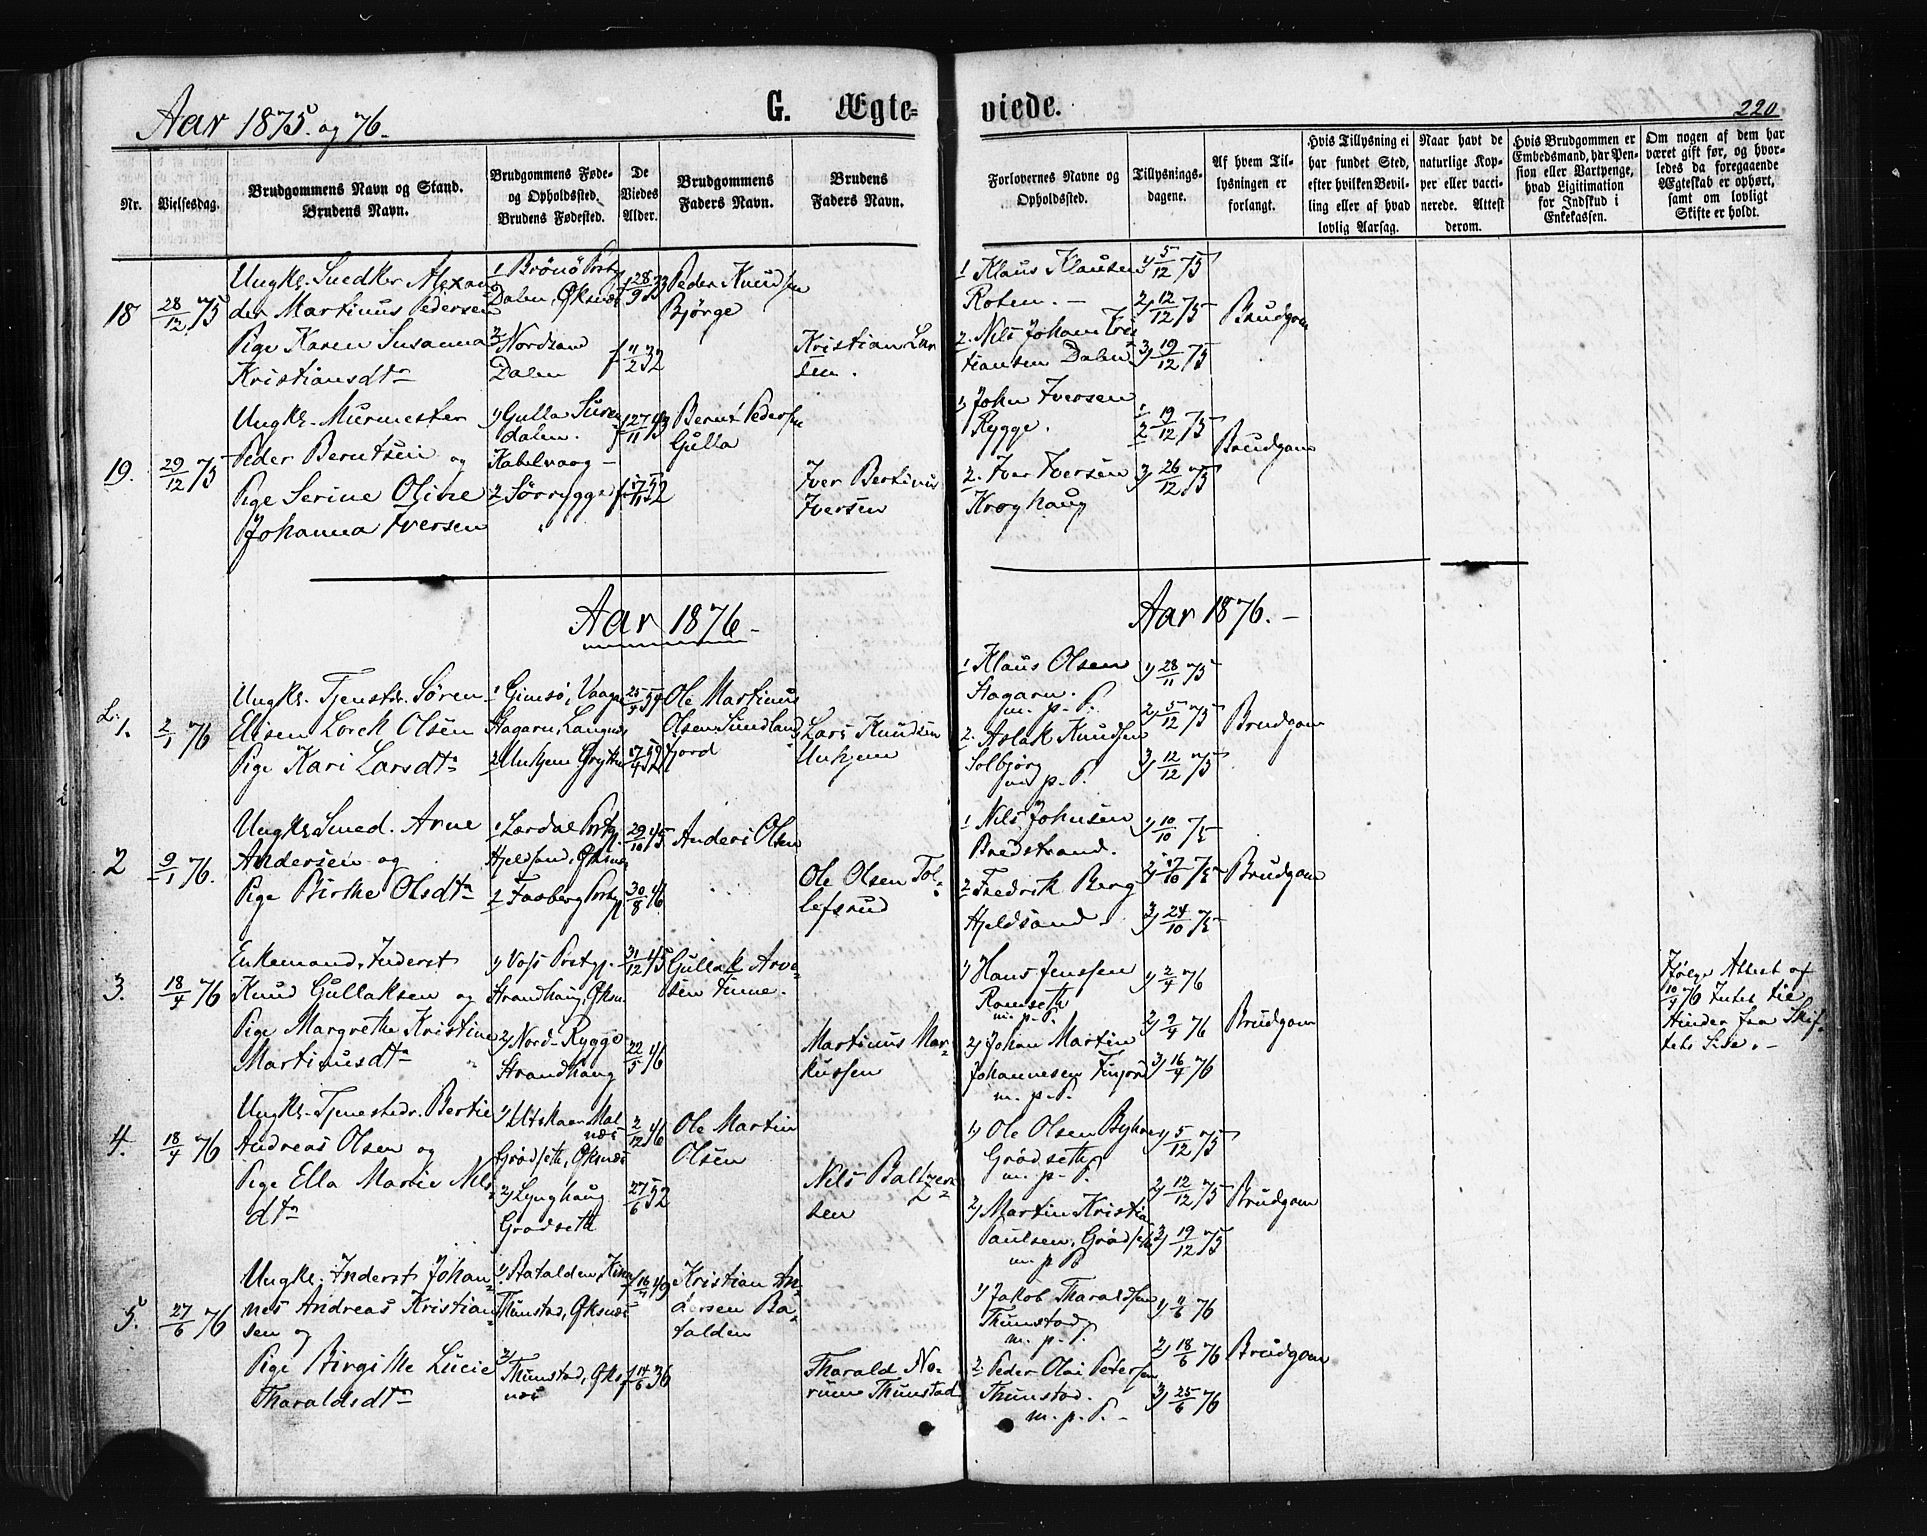 Aar 1875 og 76.
G. Ægte-
viede.
220
Nr.
Vielsesdag.
Brudgommens Navn og Stand.
Brudens Navn.
Brudgommens Føde-
og Opholdssted.
Brudens Fødested.
De
Viedes
Alder.
Brudgommens
Faders Navn.
Brudens
Faders Navn.
Forlovernes Navne og
Opholdssted.
Tillysnings-
dagene.
Af hvem Til-
lysningen er
forlangt.
Hvis Tillysning ei
har fundet Sted,
efter hvilken Bevil-
ling eller af hvad
lovlig Aarsag.
Naar havt de
naturlige Kop-
per eller vacci-
nerede. Attest
derom.
Hvis Brudgommen er
Embedsmand, har Pen-
sion eller Vartpenge,
hvad Ligitimation
for Indskud i
Enkekassen.
Om nogen af dem har
været gift før, og hvor-
ledes da foregaaende
Ægteskab er ophørt,
samt om lovligt
Skifte er holdt.
18
28/12 75
Ungkl. Snedker Alexan
der Martinus Pedersen
Pige Karen Susanna
Kristiansdtr
1 Brönö Prstg
Dalen, Øksnæs
2 Nordsan
Dalen
f 28/9 33
f 11/2 32
Peder Knudsen
Bjørge
Kristian Lar
sen.
1 Klaus Klausen
Roten. -
2. Nils Johan Kris
tiansen Dalen
1) 5/12 75
2) 12/12 75
3) 19/12 75
Brudgom
19.
29/12 75
Ungkl. Murmester
Peder Berntsen og
Pige Serine Oline
Johanna Iversen
1) Gulla Suren
dalen.
Kabelvaag -
2 Sörrygge
"
f 27/11 43
f 17/11 52
Bernt Pedersen
Gulla
Iver Bertinus
Iversen
1) John Iversen
Rygge.
2. Iver Iversen
Kroghaug
1 2 19/12 75
3) 26/12 75
Brudgom
Aar 1876 -
Aar 1876. -
L. 1.
2/1 76
Ungkl. Tjenstdr. Sören
Elisen Lorck Olsen
Pige Kari Larsdtr
1 Gimsö, Vaagan
Stagarn, Langnes
2 Unhjem Grytten
25/5 54
17/4 52
Ole Martinus
Olsen Sundlands
fjord
Lars Knudsen
Unhjem
1 Klaus Olsen
Stagarn.
m. p. P.
2. Aslak Knudsen
Solbjörg
m. p. P.
1) 28/11 75
2) 5/12 75
3) 12/12 75
Brudgom
2
9/1 76.
Ungkl. Smed. Arne
Andersen og
Pige Birthe Olsdtr
1 Lærdal Prstg.
Hjeldsand, Øksnæs
2 Faaberg Prstg.
29/10 45
30/8 46
Anders Olsen
Ole Olsen Tol-
lefsrud
1 Nils Johnsen
Bredstrand.
2 Fredrik Berg
Hjeldsand
1) 10/10 75
2) 17/10 75
3) 24/10 75
Brudgom
3.
18/4 76
Enkemand, Inderst
Knud Gullaksen og
Pige Margrethe Kristine
Martinusdtr
1) Voss Prstgj.
Strandhaug, Øksn.
2) Nord-Rygge
Strandhaug
31/12 45
22/5 46
Gullak Arve-
sen Finne.
Martinus Mar-
kussen
1) Hans Jenssen
Romseth
m. p. P.
2) Johan Martin
Johannesen Finjord
m. p. P.
1) 2/4 76
2) 9/4 76
3) 16/4 76
Brudgom
Ifølge Attest af
10/4 76 Intet til
Hinder fra Skif-
tets Side. -
4.
18/4 76
Ungkl. Tjenestedr. Bertie
Andreas Olsen og
Pige Ella Marie Nils
dtr
1) Utskaar Mal
næs
Grødseth, Øksnæs
2) Lynghaug
Grødseth
2/12 46
27/6 52
Ole Martin
Olsen
Nils Baltzer-
sen
1) Ole Olsen
Grödseth
m. p. P.
2) Martin Kristia
Paulsen, Grödseth
m. p. P.
1) 5/12 75
2) 12/12 75
3) 19/12 75
Brudgom
5.
27/6 76
Ungkl. Inderst Johan-
nes Andreas Kristian-
sen og
Pige Birgitte Lucie
Tharaldsdtr
1) Batalden, Kinn
Thunstad, Øksnæs
2)
Thunstad, Øks
næs
49
f 14/6 36
Kristian An-
dersen Ba-
talden
Tharald No-
rum Thunstad
1) Jakob Tharaldsen
Thunstad
m. p. P.
2. Peder Olai Petersen
Thunstad.
m. p. P. -
1) 11/6 76
2) 18/6 76
3) 25/6 76
Brudgom